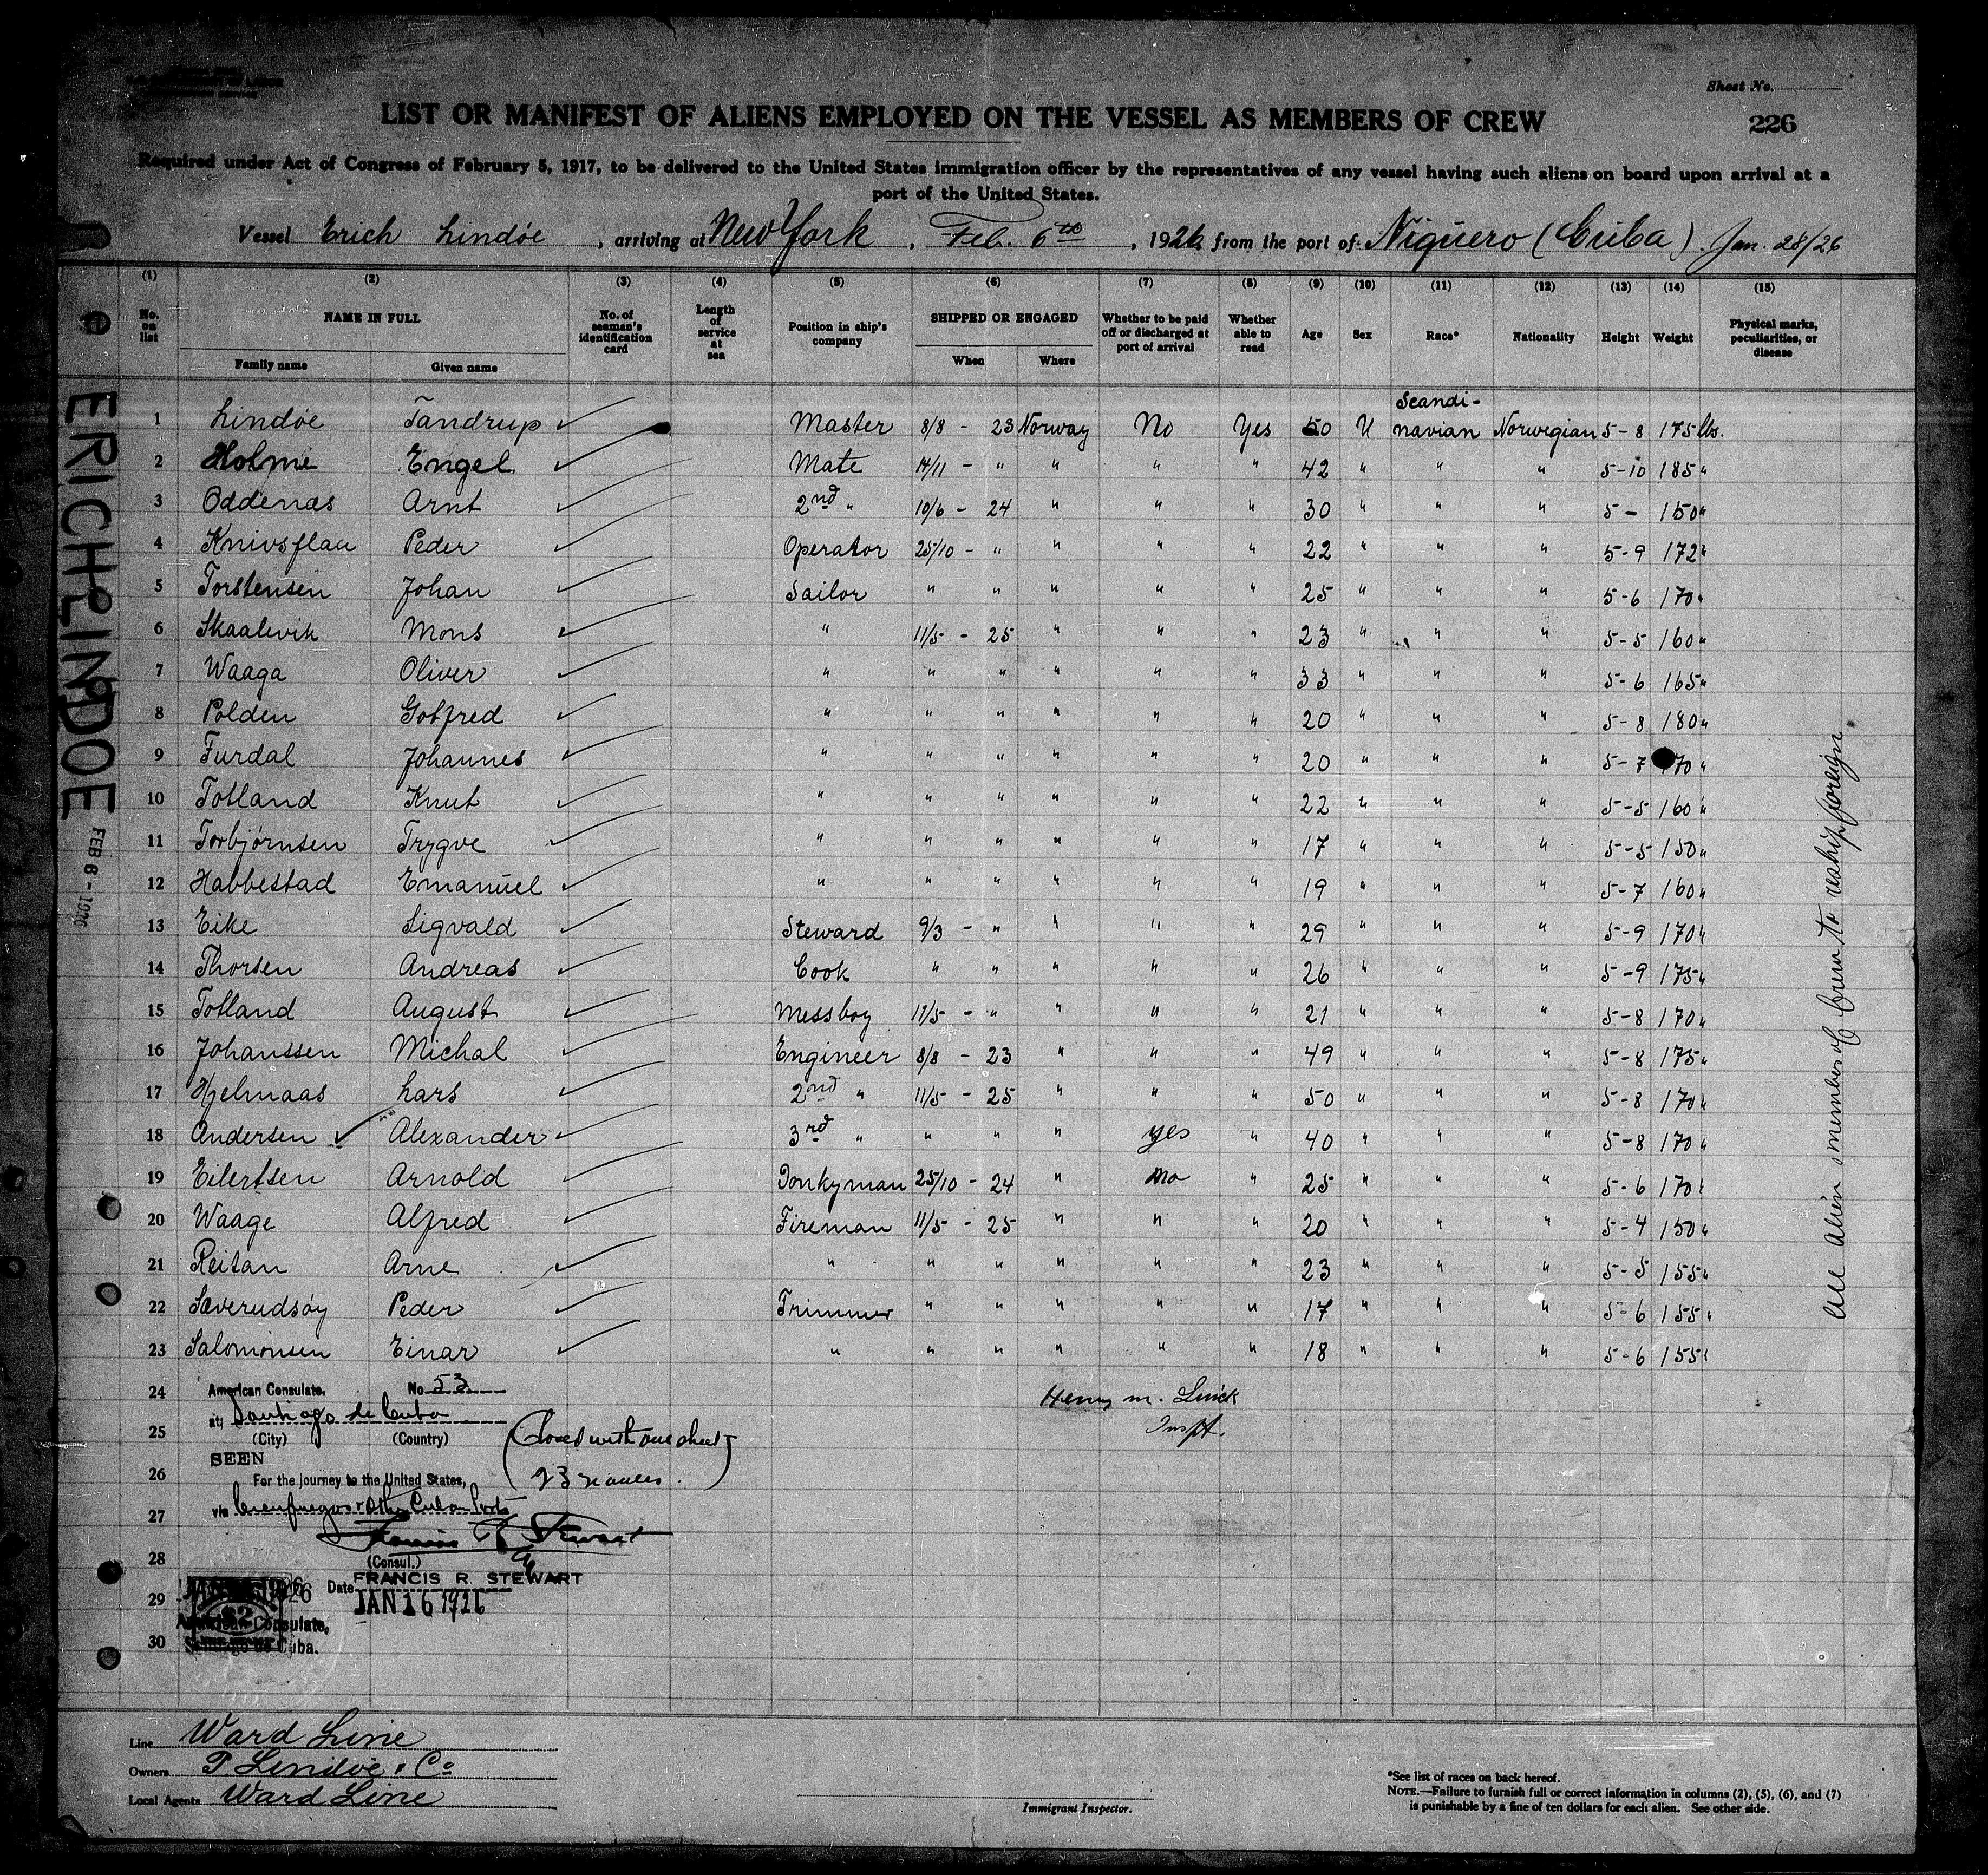 Sheet No.
LIST OR MANIFEST OF ALIENS EMPLOYED ON THE VESSEL AS MEMBERS OF CREW
226
Required under Act of Congress of February 5, 1917, to be delivered to the United States immigration officer by the representatives of any vessel having such aliens on board upon arrival at a
port of the United States.
Vessel Erich Lindöe, arriving at New York, Feb. 6th, 1926, from the port of Niquero (Cuba). Jan. 28/26
(1) (2) (3) (4) (5) (6) (7) (8) (9) (10) (11) (12) (13) (14) (15)
No. on list NAME IN FULL No. of seaman's identification card Length of service at sea Position in ship's company SHIPPED OR ENGAGED Whether to be paid off or discharged at port of arrival Whether able to read Age Sex Race* Nationality Height Weight Physical marks, peculiarities, or disease
Family name Given name When Where
1 Lindöe Tandrup Master 8/8 - 23 Norway No Yes 50 M Scandinavian Norwegian 5-8 175 lbs.
2 Holme Engel Mate 14/11 - " " " " 42 " " " 5-10 185 "
3 Oddenas Arnt 2nd " 10/6 - 24 " " " 30 " " " 5- 150 "
4 Knivsflaa Peder Operator 25/10 - " " " " 22 " " " 5-9 172 "
5 Torstensen Johan Sailor " " " " " 25 " " " 5-6 170 "
6 Skaalevik Mons " 11/5 - 25 " " " 23 " " " 5-5 160 "
7 Waaga Oliver " " " " " " 33 " " " 5-6 165 "
8 Polden Gotfred " " " " " " 20 " " " 5-8 180 "
9 Furdal Johannes " " " " " " 20 " " " 5-7 170 "
10 Totland Knut " " " " " " 22 " " " 5-5 160 "
11 Torbjørnsen Trygve " " " " " " 17 " " " 5-5 150 "
12 Habbestad Emanuel " " " " " " 19 " " " 5-7 160 "
13 Eike Sigvald Steward 9/3 - " " " " 29 " " " 5-9 170 "
14 Thorsen Andreas Cook " " " " " 26 " " " 5-9 175 "
15 Totland August Messboy 17/5 - " " " " 21 " " " 5-8 170 "
16 Johanssen Michal Engineer 8/8 - 23 " " " 49 " " " 5-8 175 "
17 Hjelmaas Lars 2nd " 11/5 - 25 " " " 50 " " " 5-8 170 "
18 Andersen Alexander 3rd " " " " yes " 40 " " " 5-8 170 "
19 Eilertsen Arnold Donkyman 25/10 - 24 " no " 25 " " " 5-6 170 "
20 Waage Alfred Fireman 11/5 - 25 " " " 20 " " " 5-4 150 "
21 Reitan Arne " " " " " " 23 " " " 5-5 155 "
22 Sæverudsøy Peder Trimmer " " " " " 17 " " " 5-6 155 "
23 Salomonsen Einar " " " " " " 18 " " " 5-6 155 "
24
25
26
27
28
29
30
ERICH LINDOE
FEB 6 - 1926
All Alien members of Crew to reship foreign
American Consulate. No 53
at Santiago de Cuba
(City) (Country)
SEEN
For the journey to the United States,
via Cienfuegos & Other Cuban Ports
(Closed with one sheet
23 names.)
Francis R Stewart
(Consul.)
FRANCIS R. STEWART
Date JAN 16 1926
American Consulate,
Santiago de Cuba.
Henry M.
Inspt.
Line Ward Line
Owners P. Lindöe & Co
Local Agents Ward Line
Immigrant Inspector.
*See list of races on back hereof.
NOTE.—Failure to furnish full or correct information in columns (2), (5), (6), and (7)
is punishable by a fine of ten dollars for each alien. See other side.